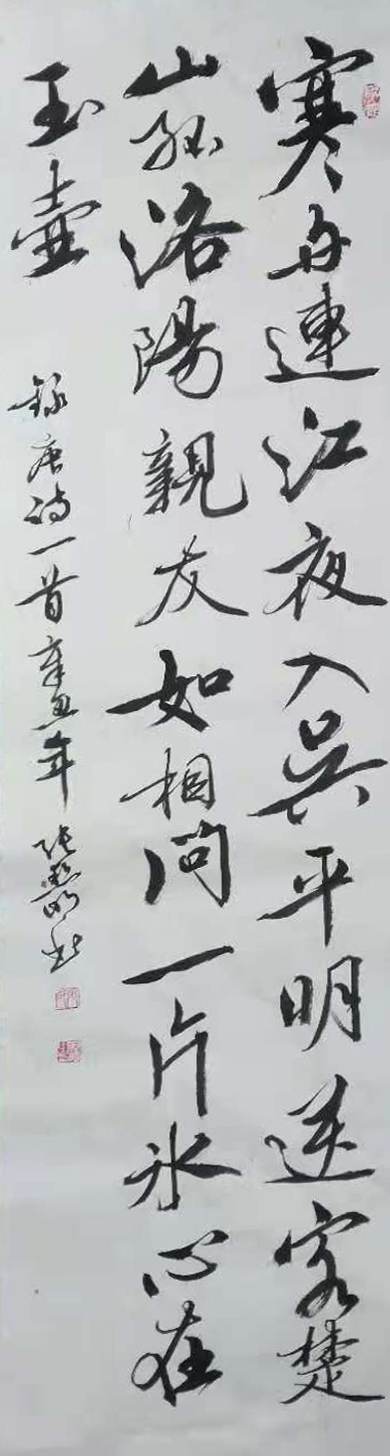 寒雨連江夜入吳平明送客楚
山孤洛陽親友如相問一片冰心在
玉壺
錄唐诗一首辛丑年 张 书